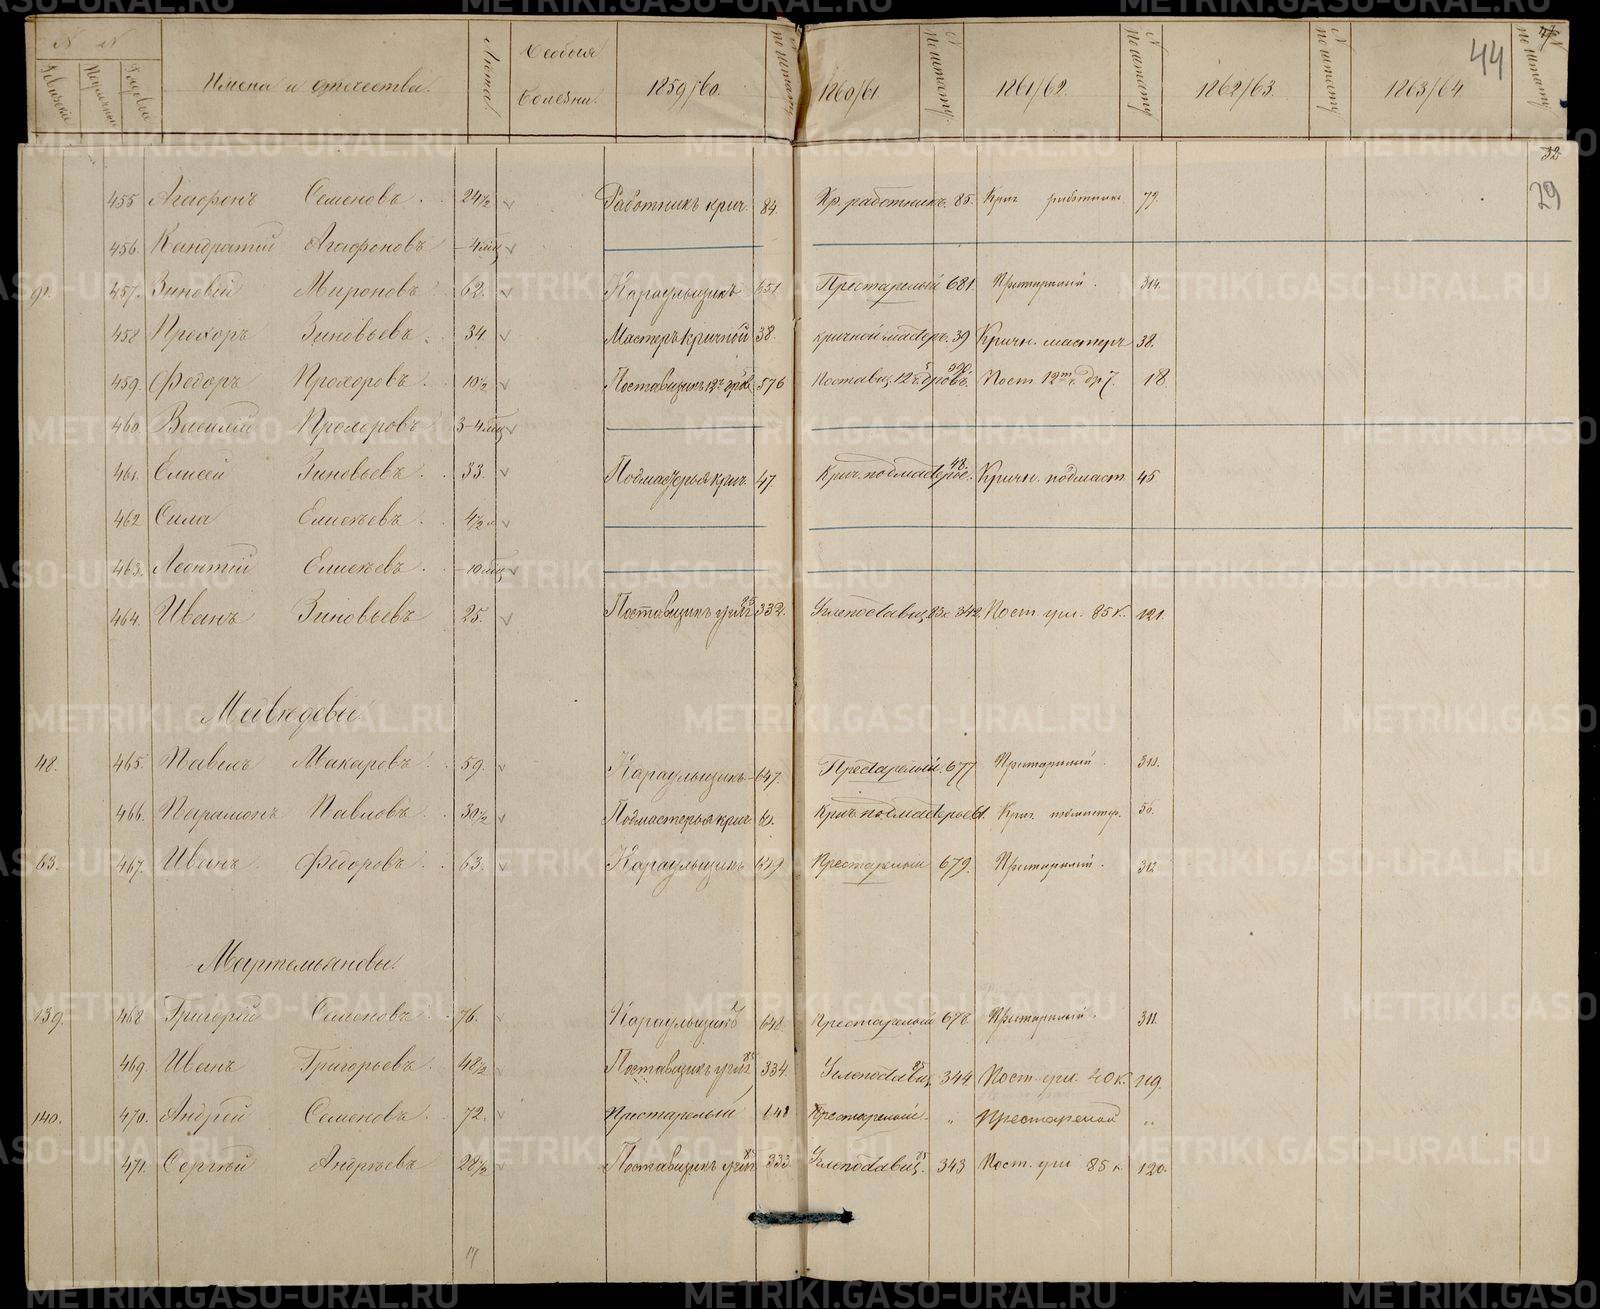 N N
Ревизскіе
Подушные
Рядовы
Имена и отчества.
Лѣта
Особыя болѣзни.
1859/60.
N по штату
1860/61.
N по штату.
1861/62.
N по штату
1862/63.
N по штату
1863/64
N по штату
44
32
29
455 Агафонъ Семеновъ. 24½ Работникъ крич. 84. Кр. работникъ. 85. Крич работник. 79.
456. Кандратій Агафоновъ —4 мѣц
91. 457. Зиновей Мироновъ. 62. Караульщикъ 651 Престарелый 681 Престарелый. 314.
458 Прохоръ Зиновьевъ. 34. Мастеръ кричной 38. кричной мастеръ. 39 Кричн. мастеръ 38.
459. Федоръ Прохоровъ. 10½ Поставщикъ 12 ч. дровъ 576 Поставщ. 12 ч. дровъ. 590. Пост. 12 ч. др 7. 18.
460. Василій Прохоровъ 3—4 мѣц
461. Елисей Зиновьевъ. 33. Подмастерья крич. 47 Крич. подмастерье. 48. Кричн. подмаст. 45
462 Сила Елисѣевъ. 4½
463. Леонтій Елисѣевъ. —10 мѣц
464. Иванъ Зиновьевъ 25. Поставщикъ угля 85 332. Углепоставщ 83к 342. Пост. угл. 85 к. 121.
Медвѣдевы.
48. 465. Павелъ Макаровъ. 59. Караульщикъ 647. Престарелый. 677 Престарелый. 310.
466. Парамонъ Павловъ. 30½ Подмастерья крич 61. Крич. подмастерье 61. Крич. подмастер. 56.
63. 467. Иванъ Федоровъ. 63. Караульщикъ 649. Престарелый 679. Престарелый. 312
Мартемьяновы.
139. 468 Григорій Семеновъ. 76. Караульщикъ 648. Престарелый 678. Престарелый. 311.
469. Иванъ Григорьевъ. 48½ Поставщикъ угля 85 334. Углепоставщ. 85 344 Пост. угл. 40 к. 119.
140. 470. Андрей Семеновъ. 72. Престарелый 648 Престарелый. „ Престарелой „
471. Сергѣй Андреевъ 28½ Поставщикъ угля 85 333. Углепоставщ. 85 343 Пост. угл 85 к. 120.
17